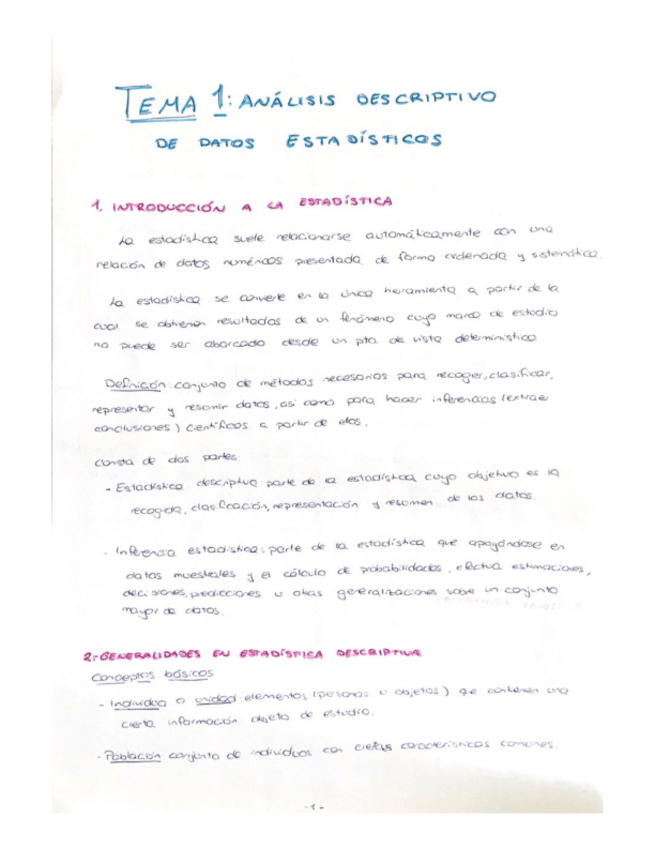 TEMA 1: ANÁLISIS DESCRIPTIVO
DE DATOS ESTADÍSTICOS
1. INTRODUCCIÓN A LA ESTADÍSTICA
La estadística suele relacionarse automáticamente con una
relación de datos numéricos presentada de forma ordenada y sistemática.
La estadística se convierte en la única herramienta a partir de la
cual se obtienen resultados de un fenómeno cuyo marco de estudio
no puede ser abarcado desde un pto. de vista determinístico
Definición: conjunto de métodos necesarios para recoger, clasificar,
representar y resumir datos, así como para hacer inferencias (extraer
conclusiones) científicas a partir de ellos.
Consta de dos partes:
- Estadística descriptiva: parte de la estadística cuyo objetivo es la
recogida, clasificación, representación y resumen de los datos.
- Inferencia estadística: parte de la estadística que apoyándose en
datos muestrales y el cálculo de probabilidades, efectua estimaciones,
decisiones, predicciones u otras generalizaciones sobre un conjunto
mayor de datos.
2.- GENERALIDADES EN ESTADÍSTICA DESCRIPTIVA
Conceptos básicos
- Individuo o unidad: elementos (personas u objetos) que contienen una
cierta información objeto de estudio.
- Población: conjunto de individuos con ciertas características comunes.
- 1 -